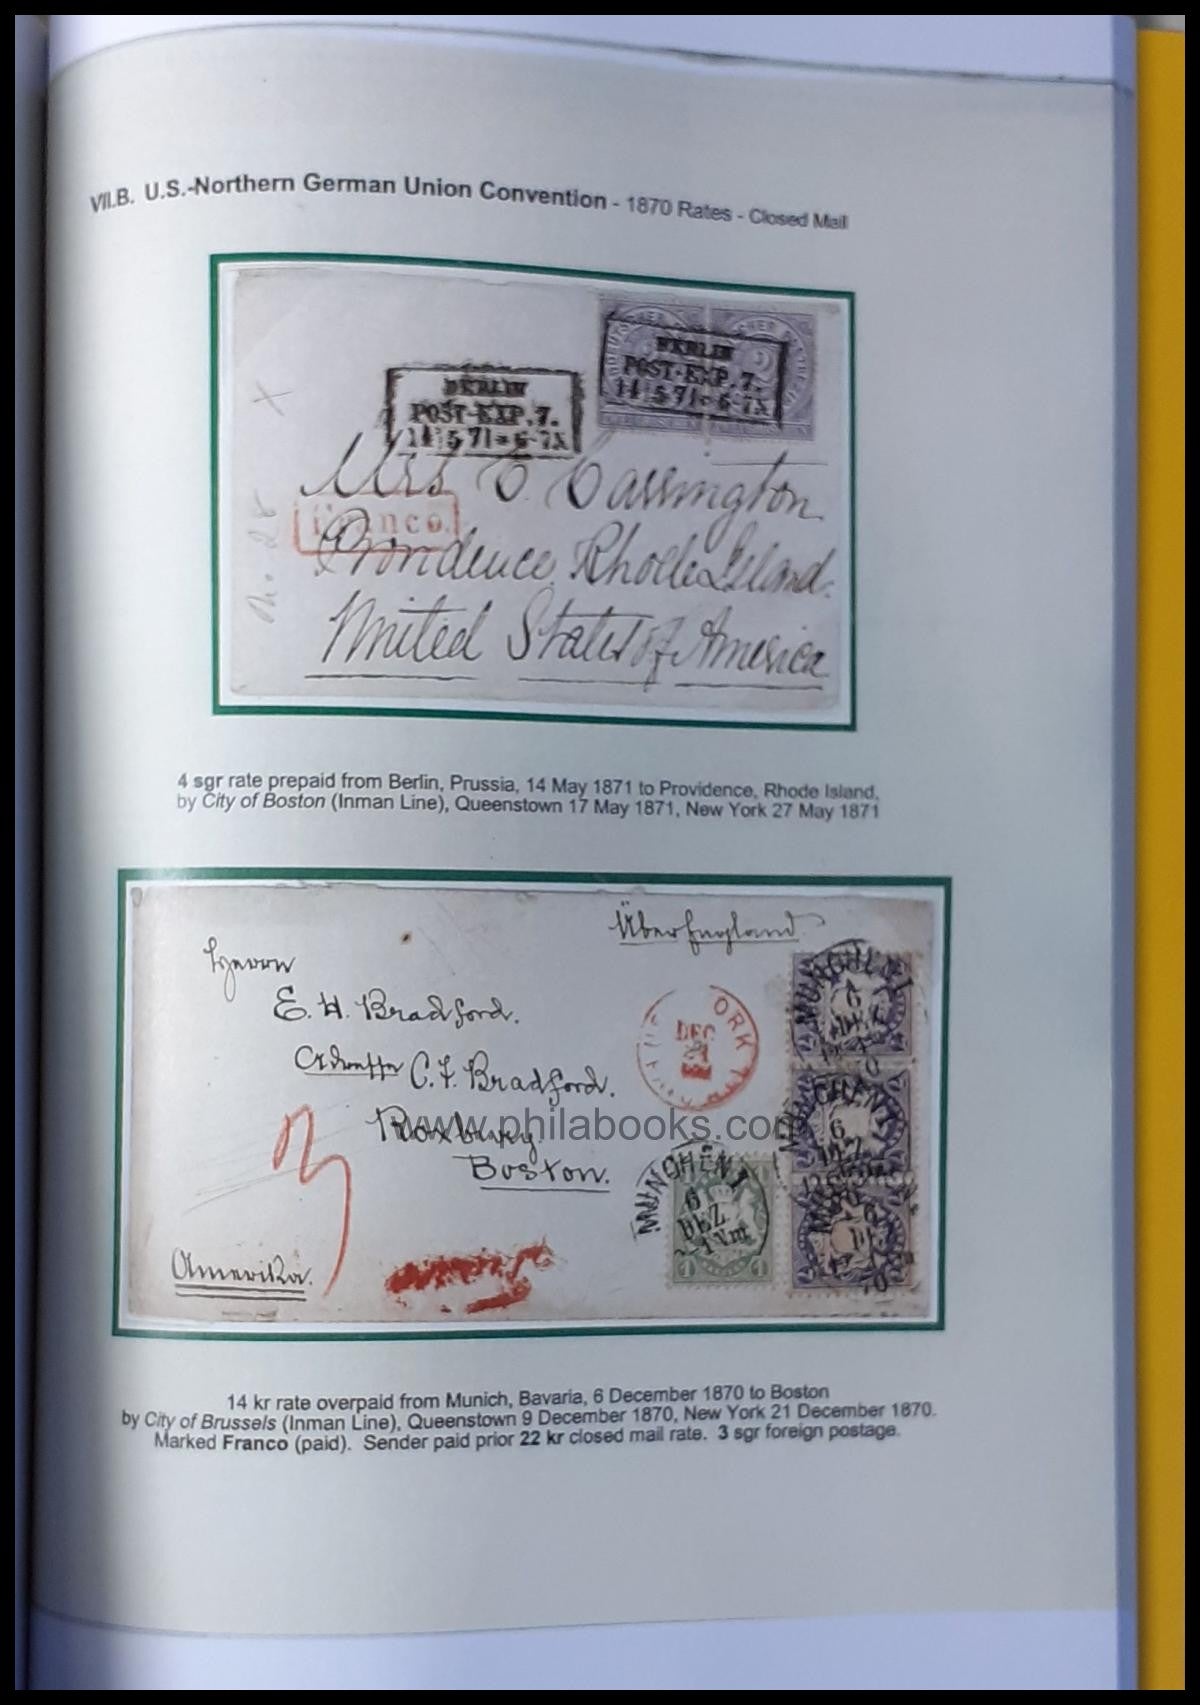 VII.B. U.S.-Northern German Union Convention - 1870 Rates - Closed Mail
BERLIN
POST-EXP. 7.
14 5 71 * 6-7
BERLIN
POST-EXP. 7.
14 5 71 * 6-7
Mrs C. Carrington
Franco.
Providence, Rhode Island.
United States of America
No. 28
4 sgr rate prepaid from Berlin, Prussia, 14 May 1871 to Providence, Rhode Island,
by City of Boston (Inman Line), Queenstown 17 May 1871, New York 27 May 1871
Über England
Herrn
E. H. Bradford.
Adresse C. F. Bradford.
Roxbury
Boston.
Amerika.
ORK
DEC
21
MÜNCHEN I
6
DEZ
MÜNCHEN I
6
DEZ
MÜNCHEN I
6
DEZ
1 Vm
1 1
3
www.philabooks.com
14 kr rate overpaid from Munich, Bavaria, 6 December 1870 to Boston
by City of Brussels (Inman Line), Queenstown 9 December 1870, New York 21 December 1870.
Marked Franco (paid). Sender paid prior 22 kr closed mail rate. 3 sgr foreign postage.